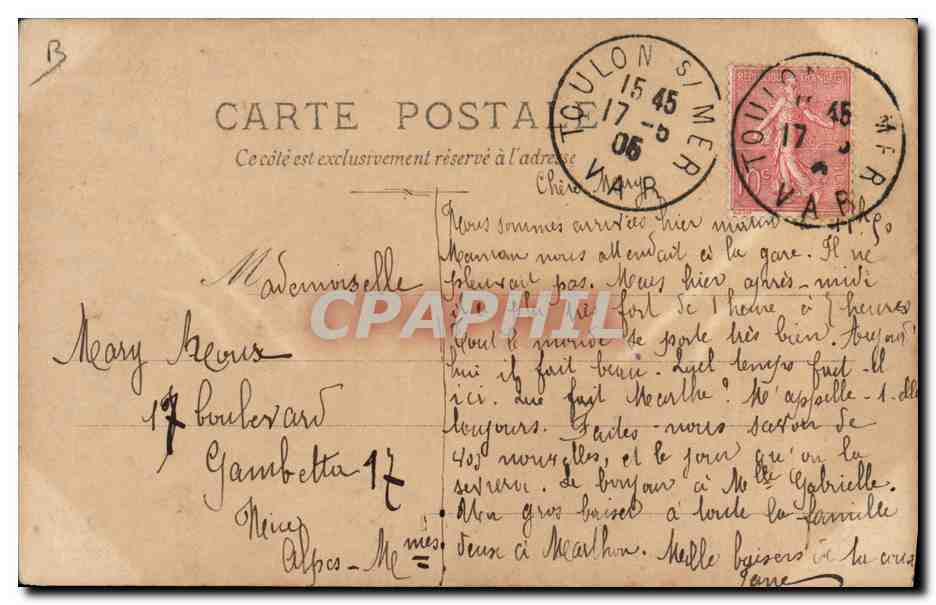 B
CARTE POSTALE
Ce côté est exclusivement réservé à l'adresse
TOULON S/MER
15 45
17 -5
05
VAR
RÉPUBLIQUE FRANÇAISE
10c
TOULON MER
45
17
VAR
Chère Mary
Nous sommes arrivées hier matin à 11h 50
Maman nous attendait à la gare. Il ne
pleuvait pas. Mais hier après-midi
il a plu très fort de 1 heure à 7 heures
Tout le monde se porte très bien. Aujourd'
hui il fait beau. Quel temps fait-il
ici. Que fait Marthe? M'appelle-t-elle
toujours. Faites-nous savoir de
vos nouvelles, et le jour qu'on la
sèvrera. Le bonjour à Melle Gabrielle.
Un gros baiser à toute la famille
deux à Marthon. Mille baisers à la
Jane
Mademoiselle
Mary
17 boulevard
Gambetta 17
Nice
Alpes-Mmes
CPAPHIL